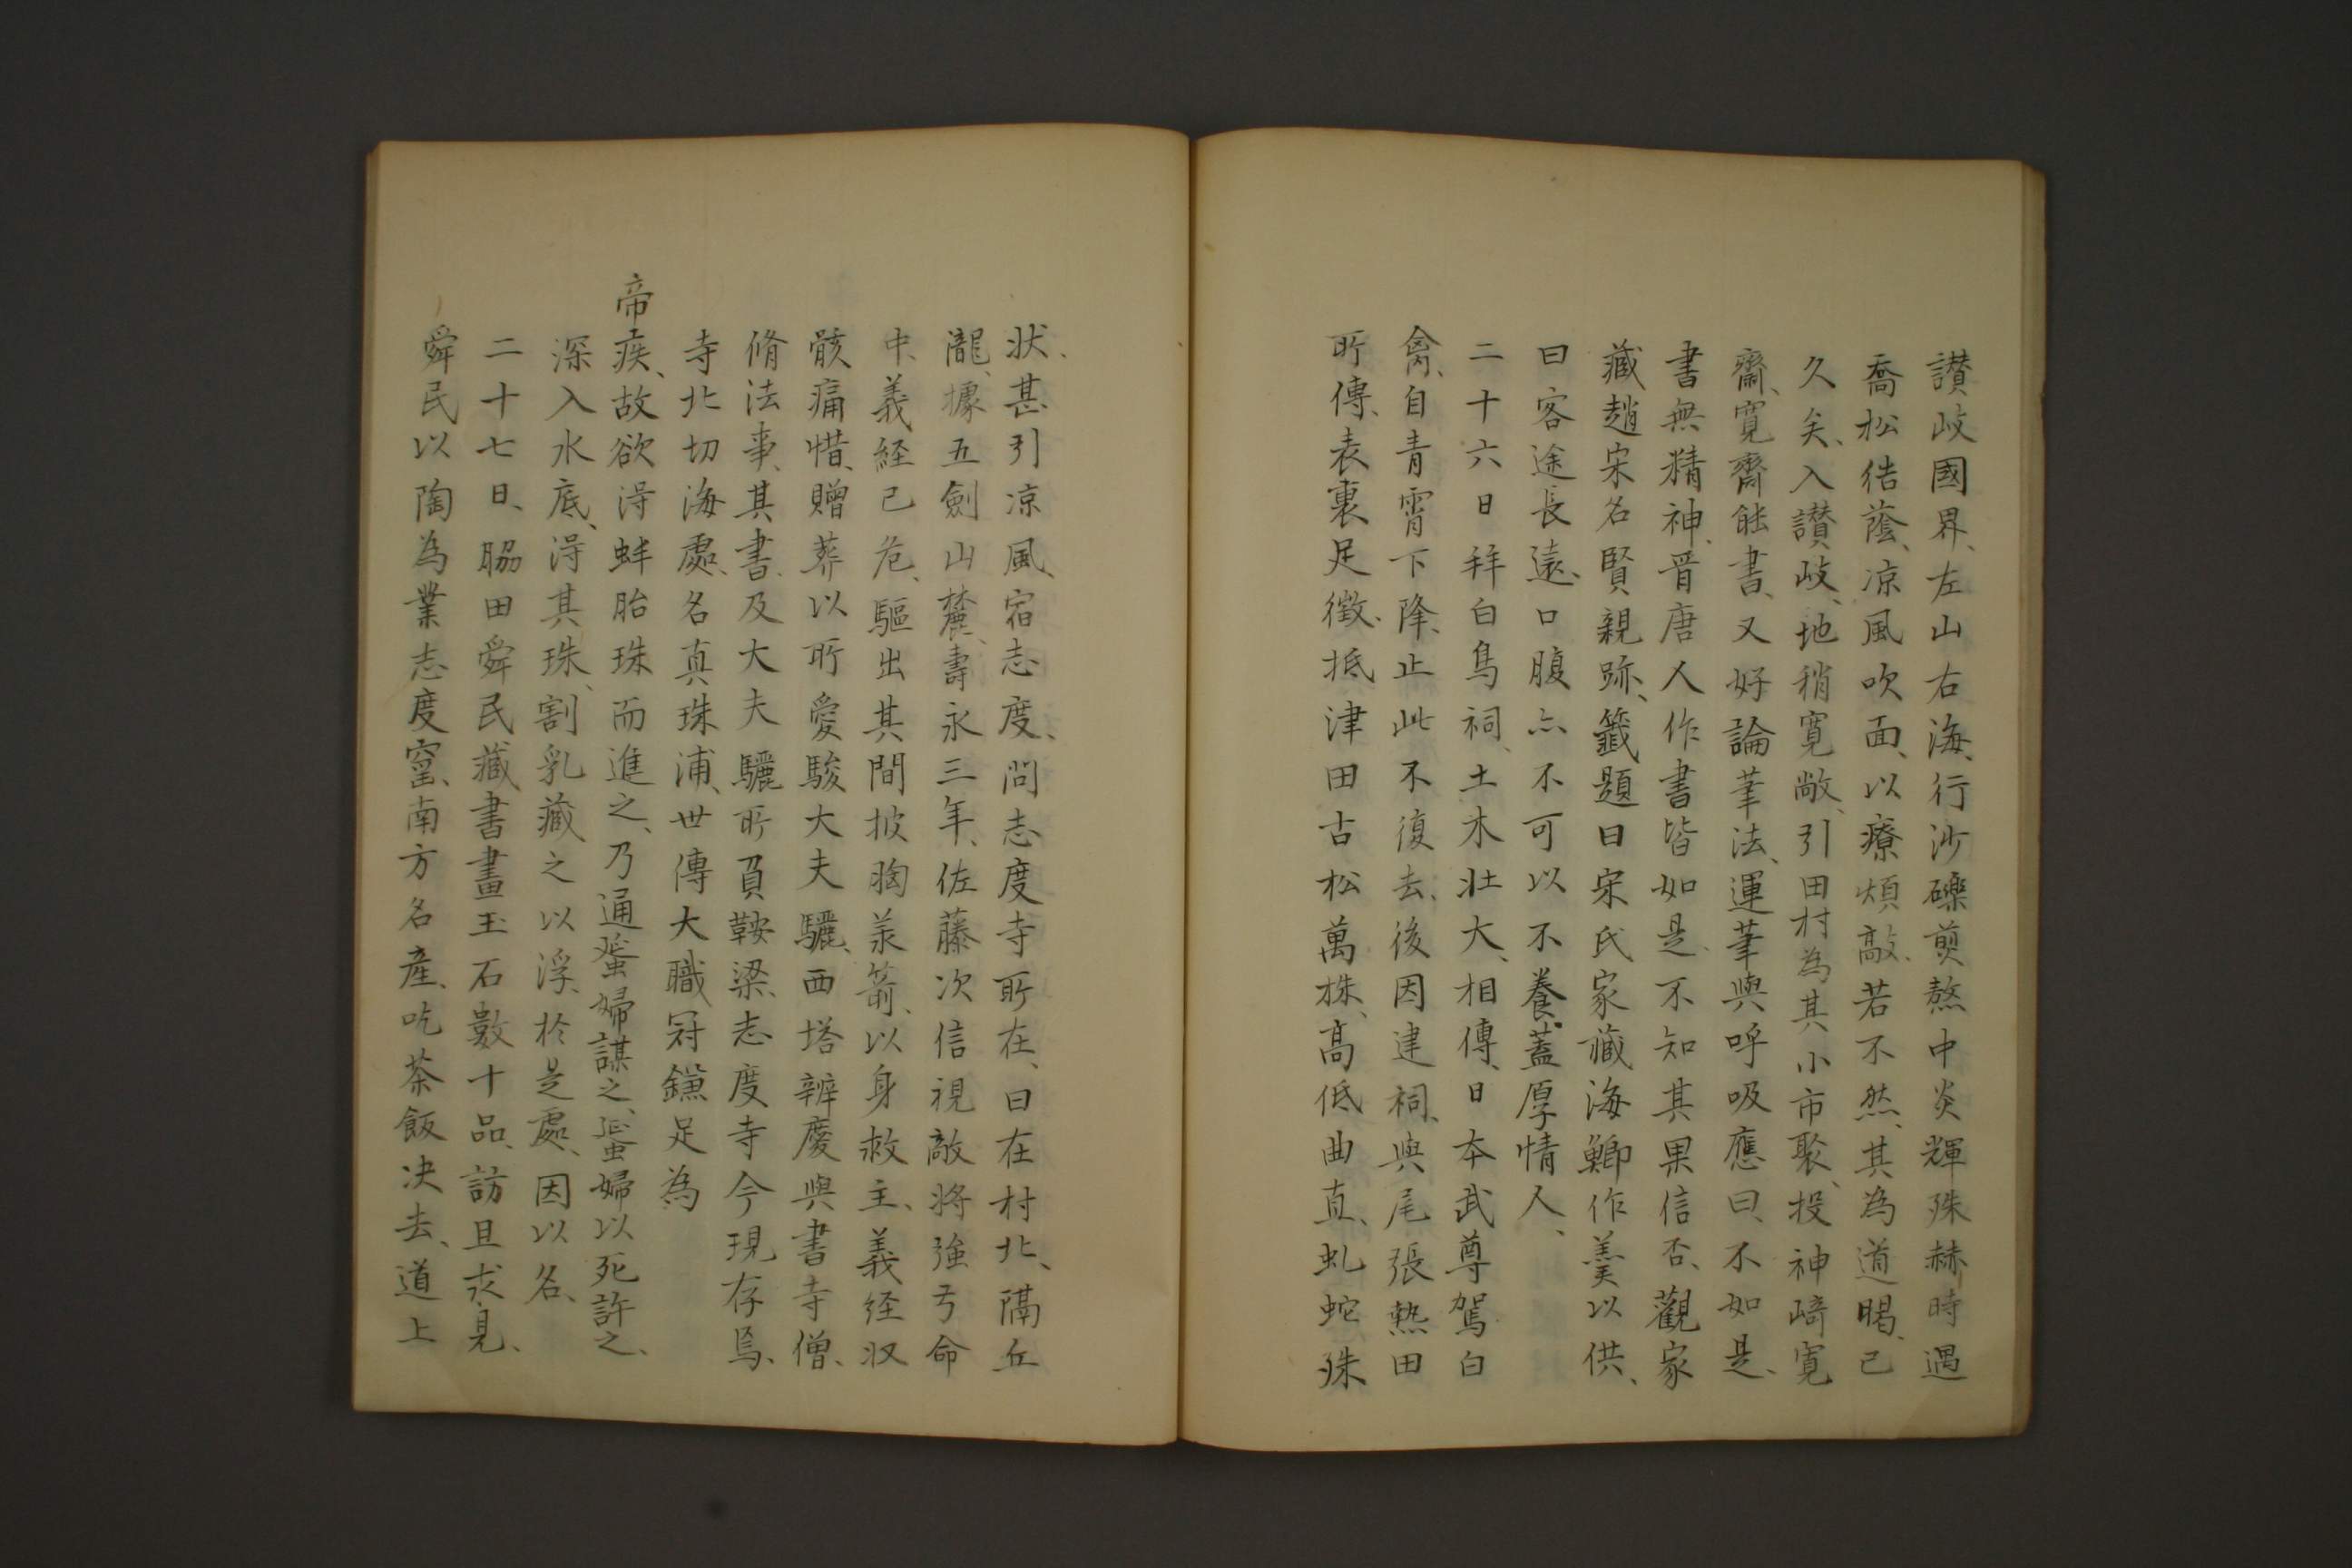 讃岐國界、左山右海、行沙礫煎熬中炎輝殊赫時遇
喬松結蔭、凉風吹面、以療煩歊、若不然、其為道暍、已
久矣、入讃岐、地稍寛敞、引田村為其小市聚、投神﨑寛
齋、寛齋能書、又好論筆法、運筆與呼吸應曰、不如是、
書無精神、晋唐人作書皆如是、不知其果信否、觀家
藏趙宋名賢親跡、籤題曰宋氏家藏海鯽作羹以供、
曰客途長遠、口腹亦不可以不養、蓋厚情人、
二十六日拜白鳥祠、土木壮大、相傳、日本武尊駕白
禽、自青霄下降、止此不復去、後因建祠、與尾張熱田
所傳、表裏足徴、抵津田古松萬株、高低曲直、虬蛇殊
状、甚引凉風、宿志度、問志度寺所在、曰在村北、隔丘
隴、據五劍山麓、壽永三年、佐藤次信視敵将強弓命
中、義経已危、驅出其間披胸羕箭、以身救主、義経収
骸痛惜、贈葬以所愛駿大夫驪、西塔辨慶與書寺僧、
脩法事、其書及大夫驪所負鞍梁、志度寺今現存焉、
寺北切海處、名真珠浦、世傳大職冠鎌足為
帝疾、故欲淂蚌胎珠而進之、乃通蜑婦謀之、蜑婦以死許之、
深入水底、淂其珠、割乳藏之以浮、於是處、因以名、
二十七日、脇田舜民藏書畫玉石數十品、訪且求見、
舜民以陶為業志度窯、南方名産、吃茶飯决去、道上